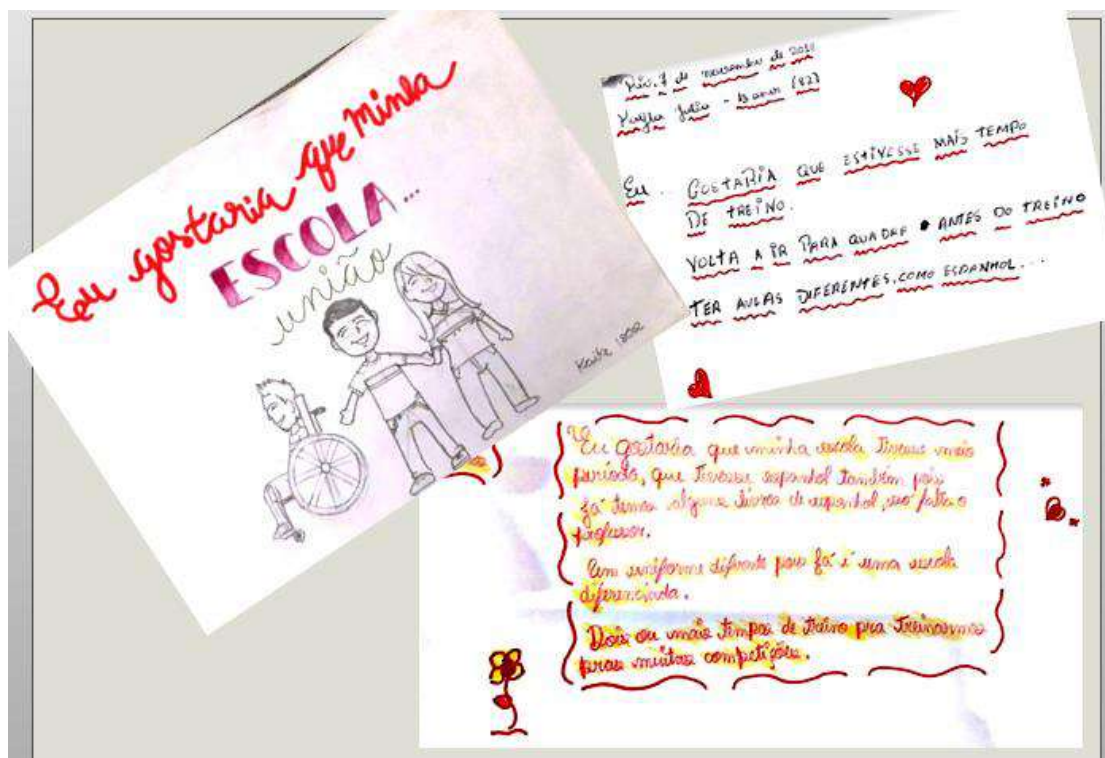 Eu gostaria que minha
ESCOLA...
união
Kaike 1802
Rio, 7 de novembro de
Julia - 13 anos (82)
Eu. GOSTARIA QUE ESTIVESSE MAIS TEMPO
DE TREINO.
VOLTA A IR PARA QUADRA ANTES DO TREINO
TER AULAS DIFERENTES, COMO ESPANHOL...
Eu gostaria que minha escola tivesse meio
período, que tivesse espanhol também pois
já temos alguns livros de espanhol, só falta o
professor.
Um uniforme diferente pois já é uma escola
diferenciada.
Dois ou mais tempos de treino pra treinarmos
pras muitas competições.